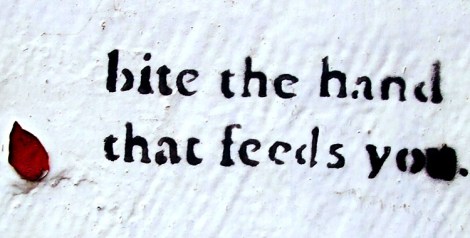 bite the hand
that feeds you.